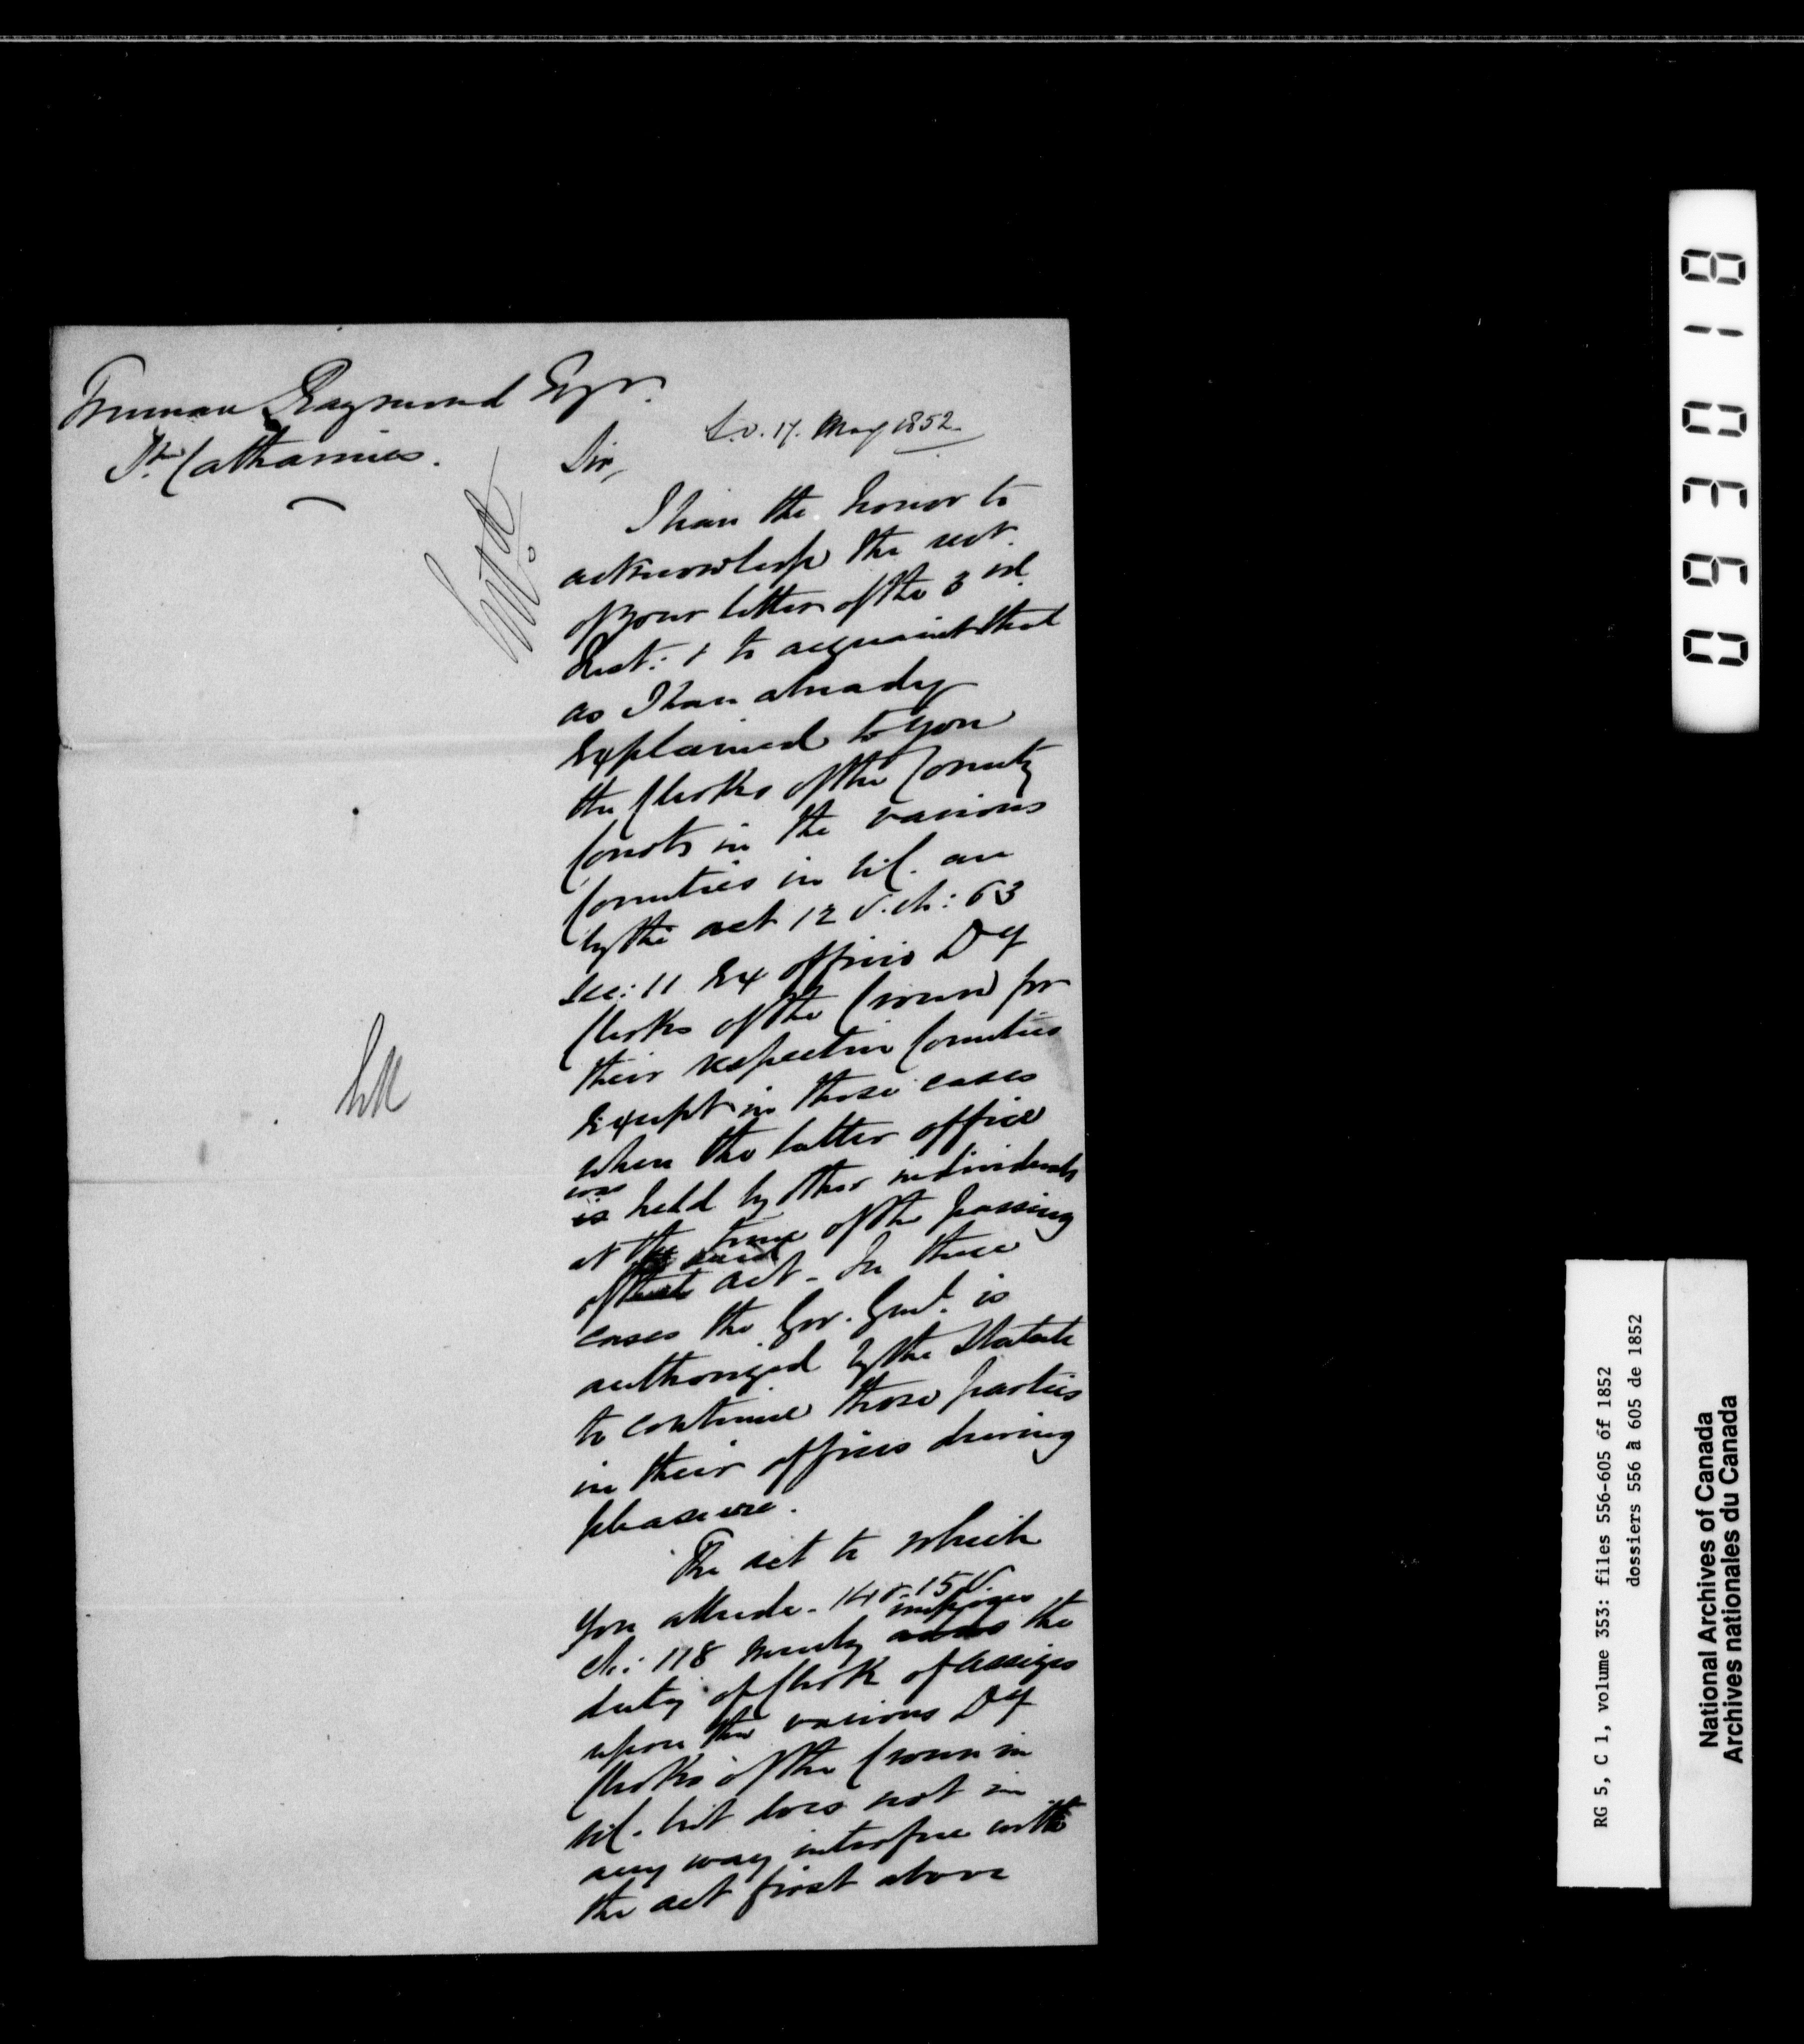 Truman Raymond Esqr.
St. Catharines.
S.O. 17. May 1852.
Sir,
I have the honor to
acknowledge the rect.
of your letter of the 3rd.
Inst: & to acquaint that
as I have already
explained to you
the Clerks of the County
Courts in the various
Counties in U.C. are
by the act 12 V. ch: 63
sec: 11 Ex officio Dy
Clerks of the Crown for
their respective Counties
except in those cases
when the latter office
was
is held by other individuals
at the time of the passing
said
of that act - In these
cases the Gov. Genl. is
authorized by the Statute
to continue those parties
in their offices during
pleasure.
The act to which
you allude - 14 & 15 V.
imposes
ch: 118 merely adds the
duty of Clerk of assizes
upon the various Dy
Clerks of the Crown in
U.C. but does not in
any way interfere with
the act first above
093018
RG 5, C 1, volume 353: files 556-605 of 1852
dossiers 556 à 605 de 1852
National Archives of Canada
Archives nationales du Canada